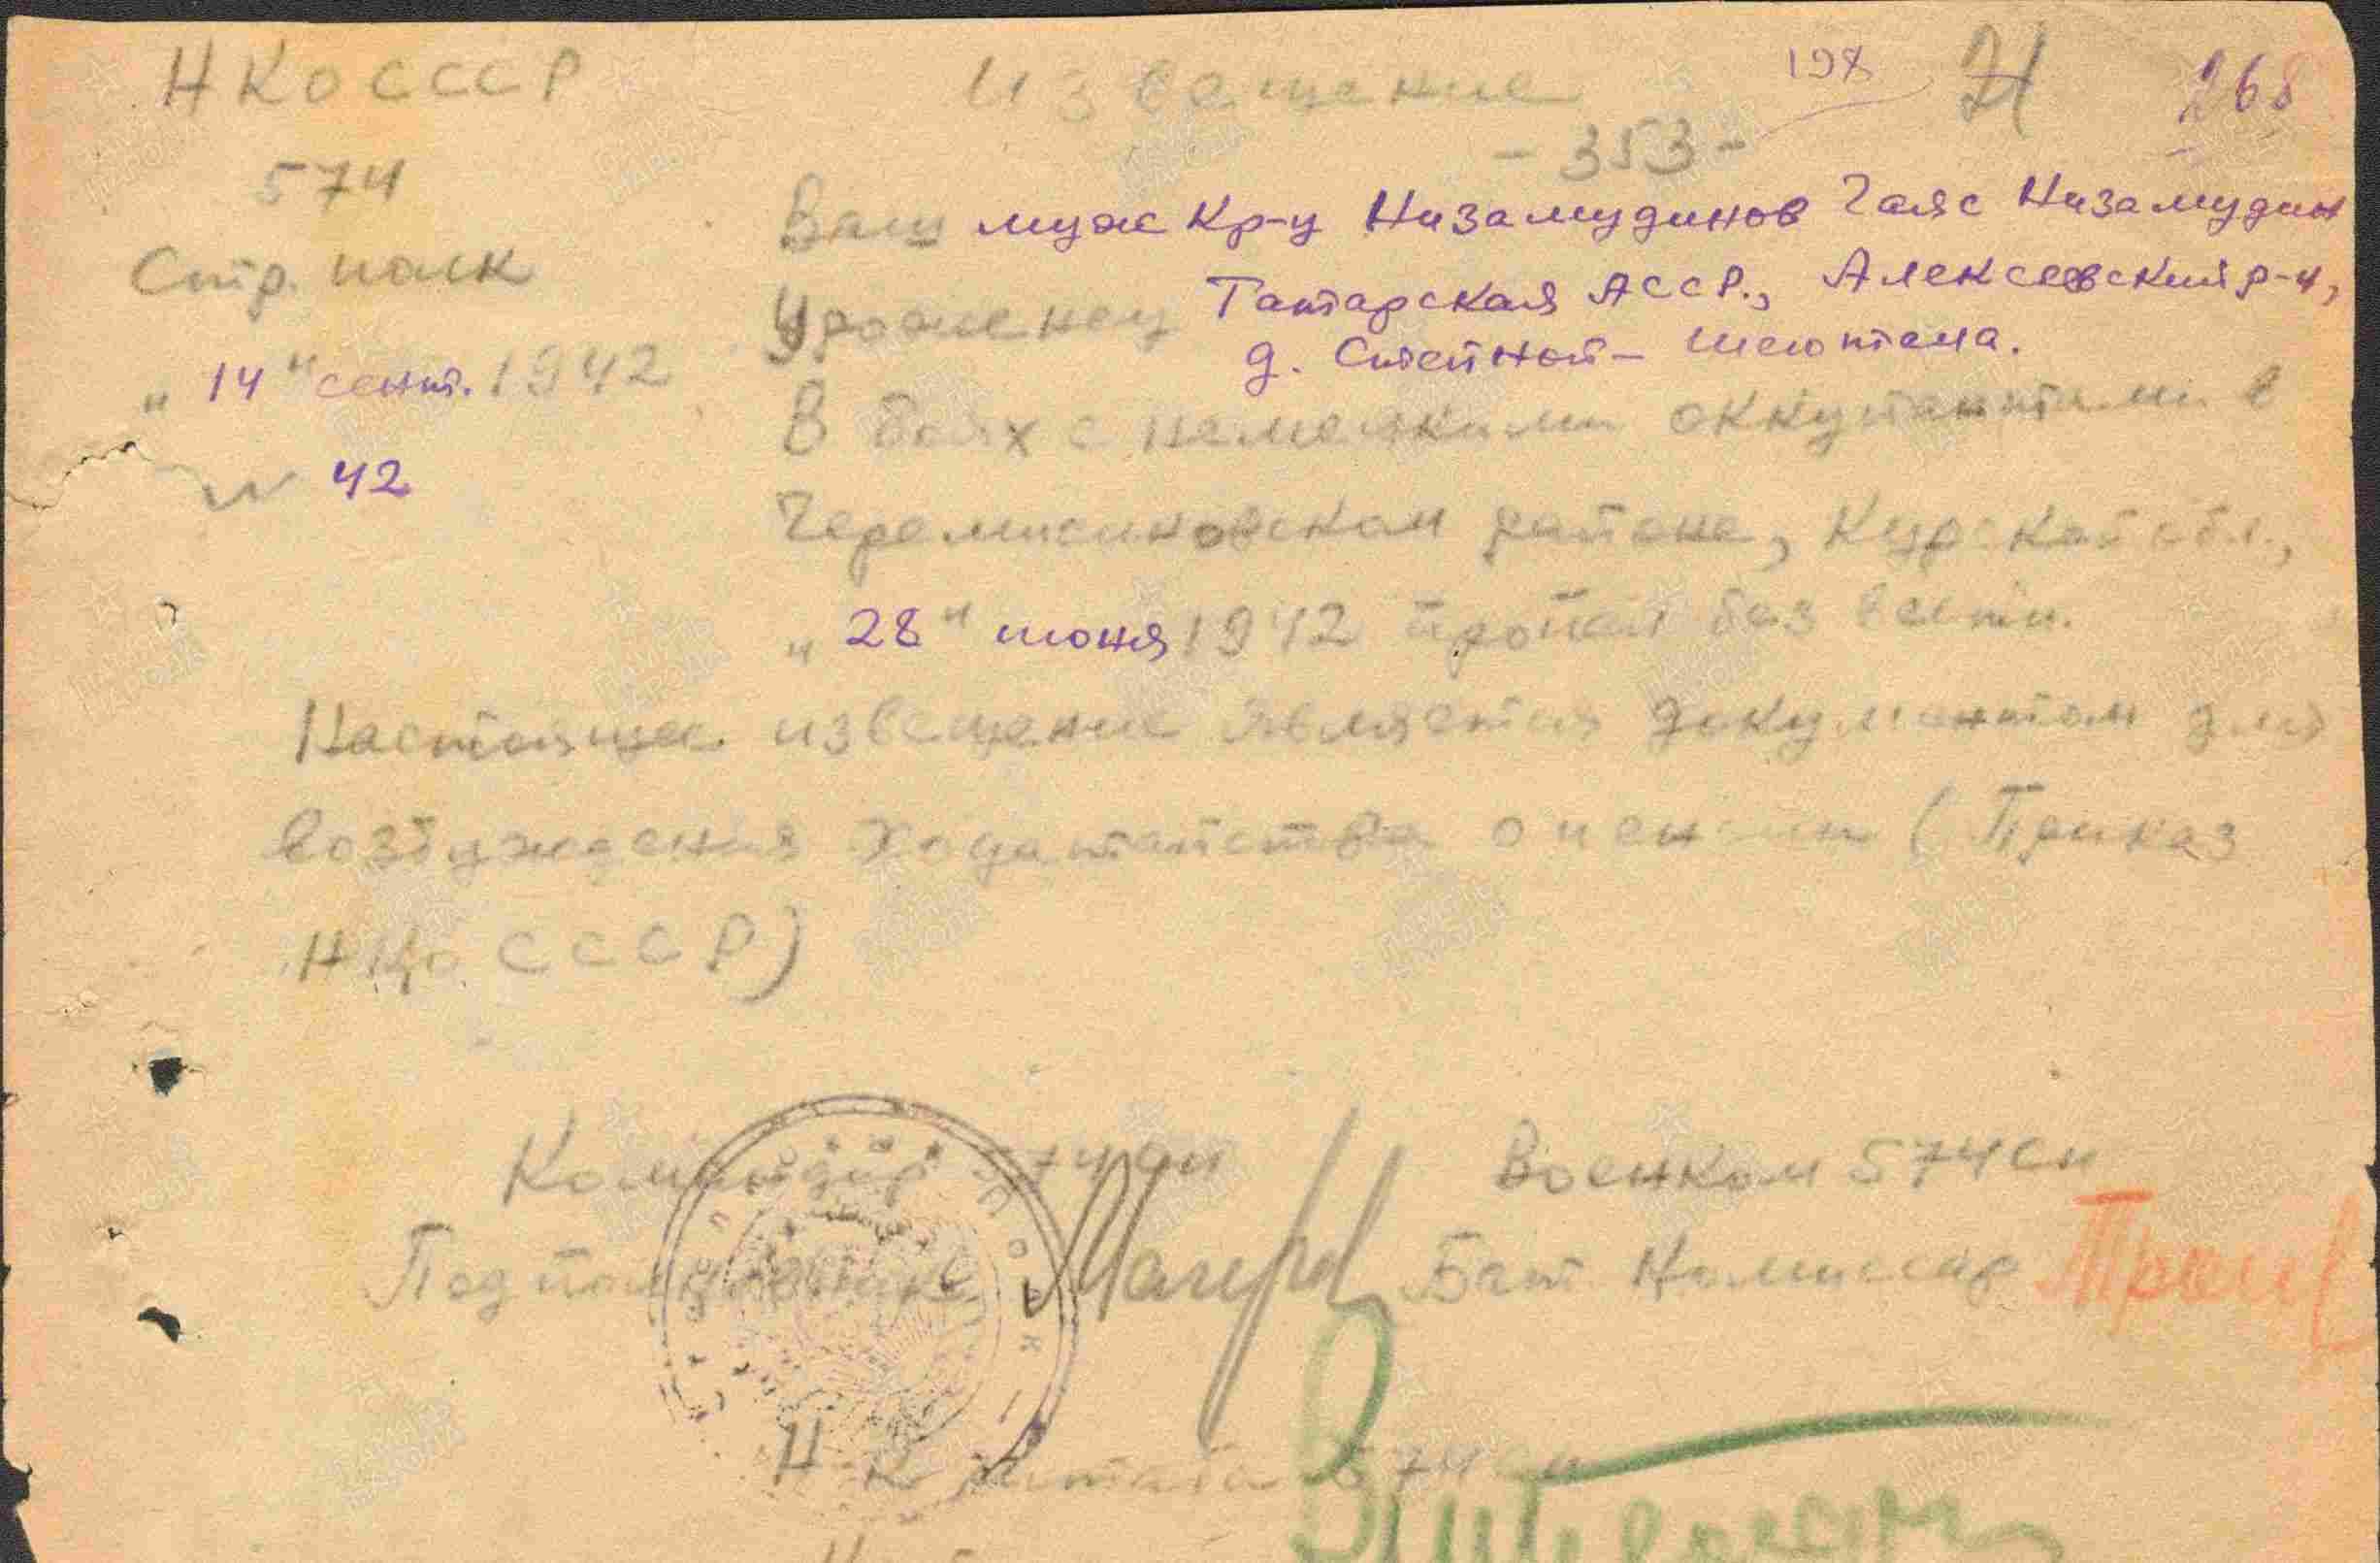 НКО СССР
Извещение
198
Н
268
574
- 353 -
Стр. полк
Ваш муж кр-ц Низамудинов Гаяс Низамудин
Уроженец Татарская АССР., Алексеевский р-н,
д. Степной-Шентала.
„14" сент. 1942
№ 42
В боях с немецкими оккупантами в
Черемисиновском районе, Курской обл.,
„28" июня 1942 пропал без вести.
Настоящее извещение является документом для
возбуждения ходатайства о пенсии (Приказ
НКО СССР)
Командир 574 сп
Военком 574 сп
Подполковник
Бат. Комиссар
Н-к штаба 574 сп